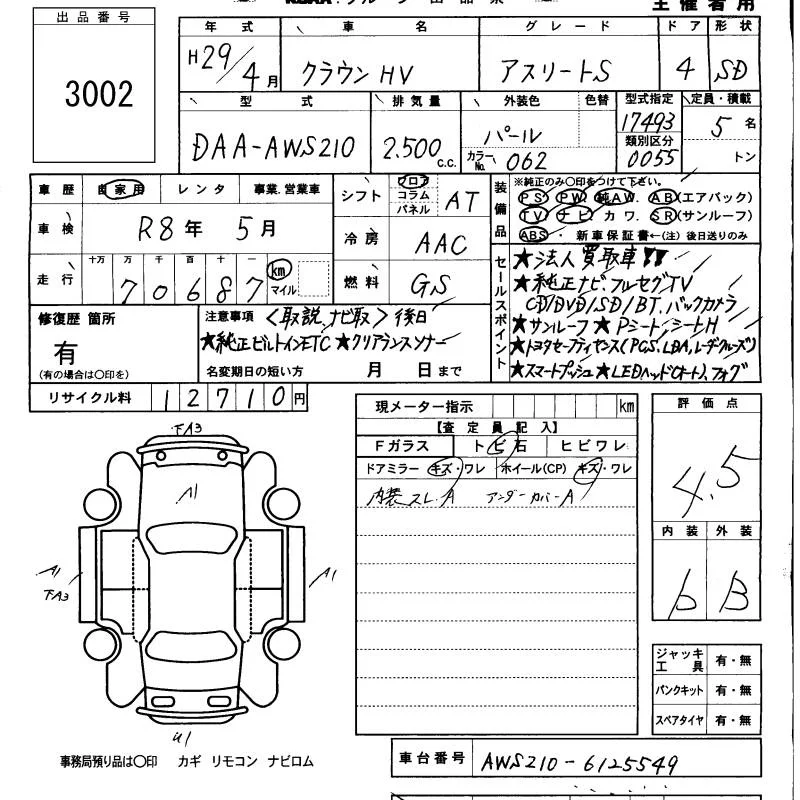 出品番号
3002
主催者用
年式 車名 グレード ドア 形状
H29/4月 クラウンHV アスリートS 4 SD
型式 排気量 外装色 色替 型式指定 定員・積載
DAA-AWS210 2.500c.c. パール カラーNo.062 17493 類別区分 0055 5名 トン
車歴 自家用 レンタ 事業.営業車
車検 R8年 5月
走行 十万 万 千 百 十 一
70687 km マイル
シフト フロア コラム パネル AT
冷房 AAC
燃料 GS
装備品
※純正のみ○印をつけて下さい。
PS PW 純AW. AB(エアバック)
TV ナビ カワ. SR(サンルーフ)
ABS ・ 新車保証書←(注)後日送りのみ
セールスポイント
★法人買取車!!
★純正ナビ.フルセグTV
CD/DVD/SD/BT.バックカメラ
★サンルーフ★Pシート.シートH
★トヨタセーフティセンス(PCS.LDA.レーダークルーズ)
★スマートプッシュ★LEDヘッド(オート).フォグ
修復歴 箇所
有
(有の場合は○印を)
注意事項 〈取説.ナビ取〉後日
★純正ビルトインETC★クリアランスソナー
名変期日の短い方 月 日まで
リサイクル料 12710円
現メーター指示 km
【査定員記入】
Fガラス トビ石 ヒビワレ
ドアミラー キズ・ワレ ホイール(CP) キズ・ワレ
内装スレ.A アンダーカバーA
評価点
4.5
内装 外装
b B
ジャッキ工具 有・無
パンクキット 有・無
スペアタイヤ 有・無
下A3
A1
A1
下A3
A1
U1
事務局預り品は○印 カギ リモコン ナビロム
車台番号 AWS210-6125549